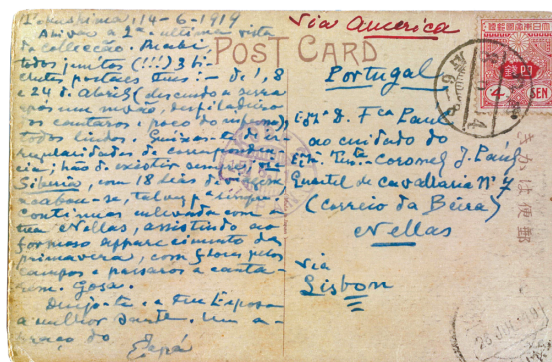 14-6-1919
Ahi vão a 2ª e ultima vista
da collecção. Recebi,
todos juntos (!!!) 3 bi-
lhetes postaes teus: - de 1, 8
e 24 de Abril (descendo a serra
após um nevão, desfiladeiro
dos cantaros, poço do inferno),
todos lindos. Queixas-te de ir-
regularidades de correspondên-
cia; hão de existir sempre.
Siberia, com 18 dias de
acabou-se, talvez p. sempre.
Continuas enlevada com a
tua Nellas, assistindo ao
formoso apparecimento da
primavera, com flores pelos
campos e passaros a canta-
rem. Goza.
Desejo-te e a teu Esposo
a melhor saude. Um a-
braço do
Pepá
Via America
POST CARD
Portugal
D. Fca Paul
ao cuidado do
Tte-coronel J. Paul
Quartel de cavallaria Nº 7
(Correio da Beira)
Nellas
Via
Lisbon
4 SEN
きかは便郵